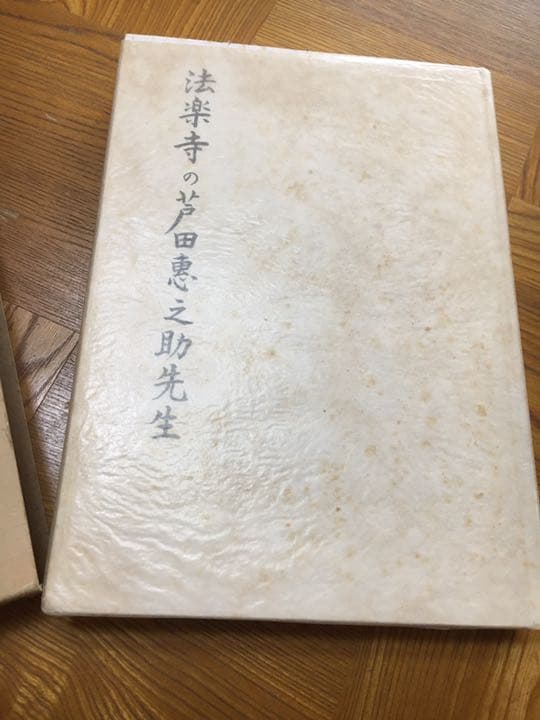 法楽寺の芦田惠之助先生